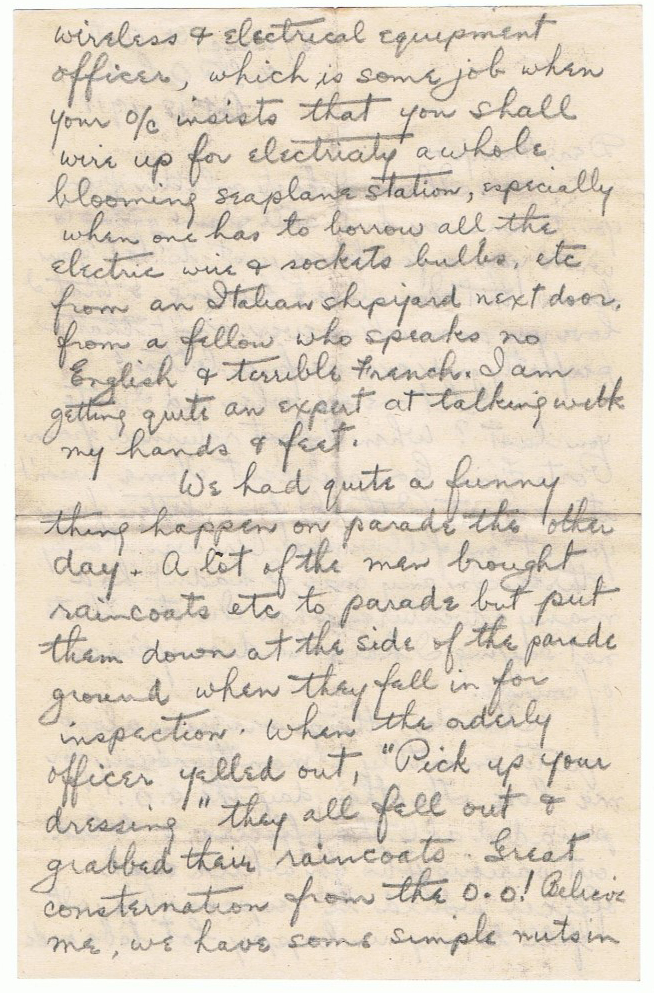 wireless & electrical equipment
officer, which is some job when
your o/c insists that you shall
wire up for electricity a whole
blooming seaplane station, especially
when one has to borrow all the
electric wire & sockets bulbs, etc
from an Italian shipyard next door,
from a fellow who speaks no
English & terrible French. I am
getting quite an expert at talking with
my hands & feet.
We had quite a funny
thing happen on parade the other
day. A lot of the men brought
raincoats etc to parade but put
them down at the side of the parade
ground when they fell in for
inspection. When the orderly
officer yelled out, "Pick up your
dressing" they all fell out &
grabbed their raincoats. Great
consternation from the O.O! Believe
me, we have some simple nuts in